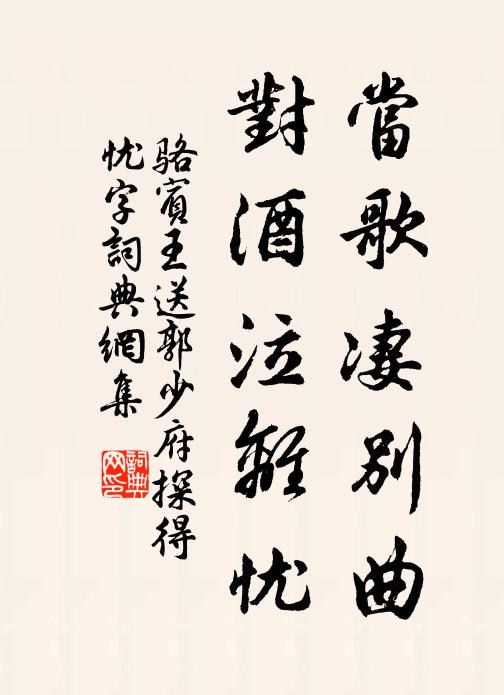 當歌凄別曲
對酒泣離忧
骆賓王送郭少府探得
忧字詞典網集
詞典网印